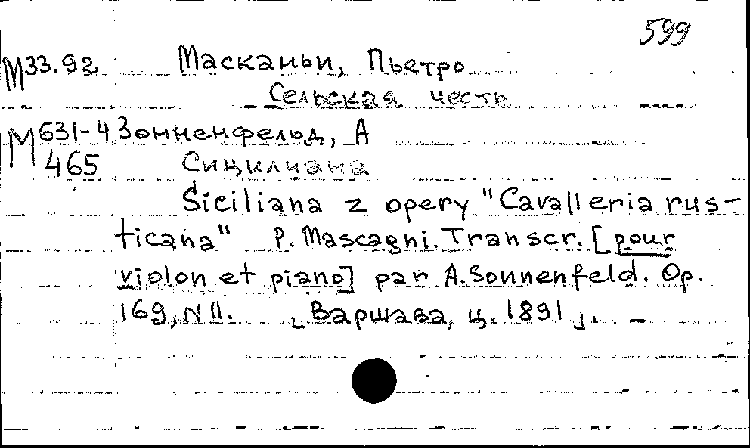 599
М33.92 Масканьи, Пьетро
Сельская честь
М631-4 Зонненфельд, А
465 Сицилиана
Siciliana z opery "Cavalleria rus-
ticana" P. Mascagni. Transcr. [pour
violon et piano] par A. Sonnenfeld. Op.
169, N 11. [Варшава, ц. 1891].